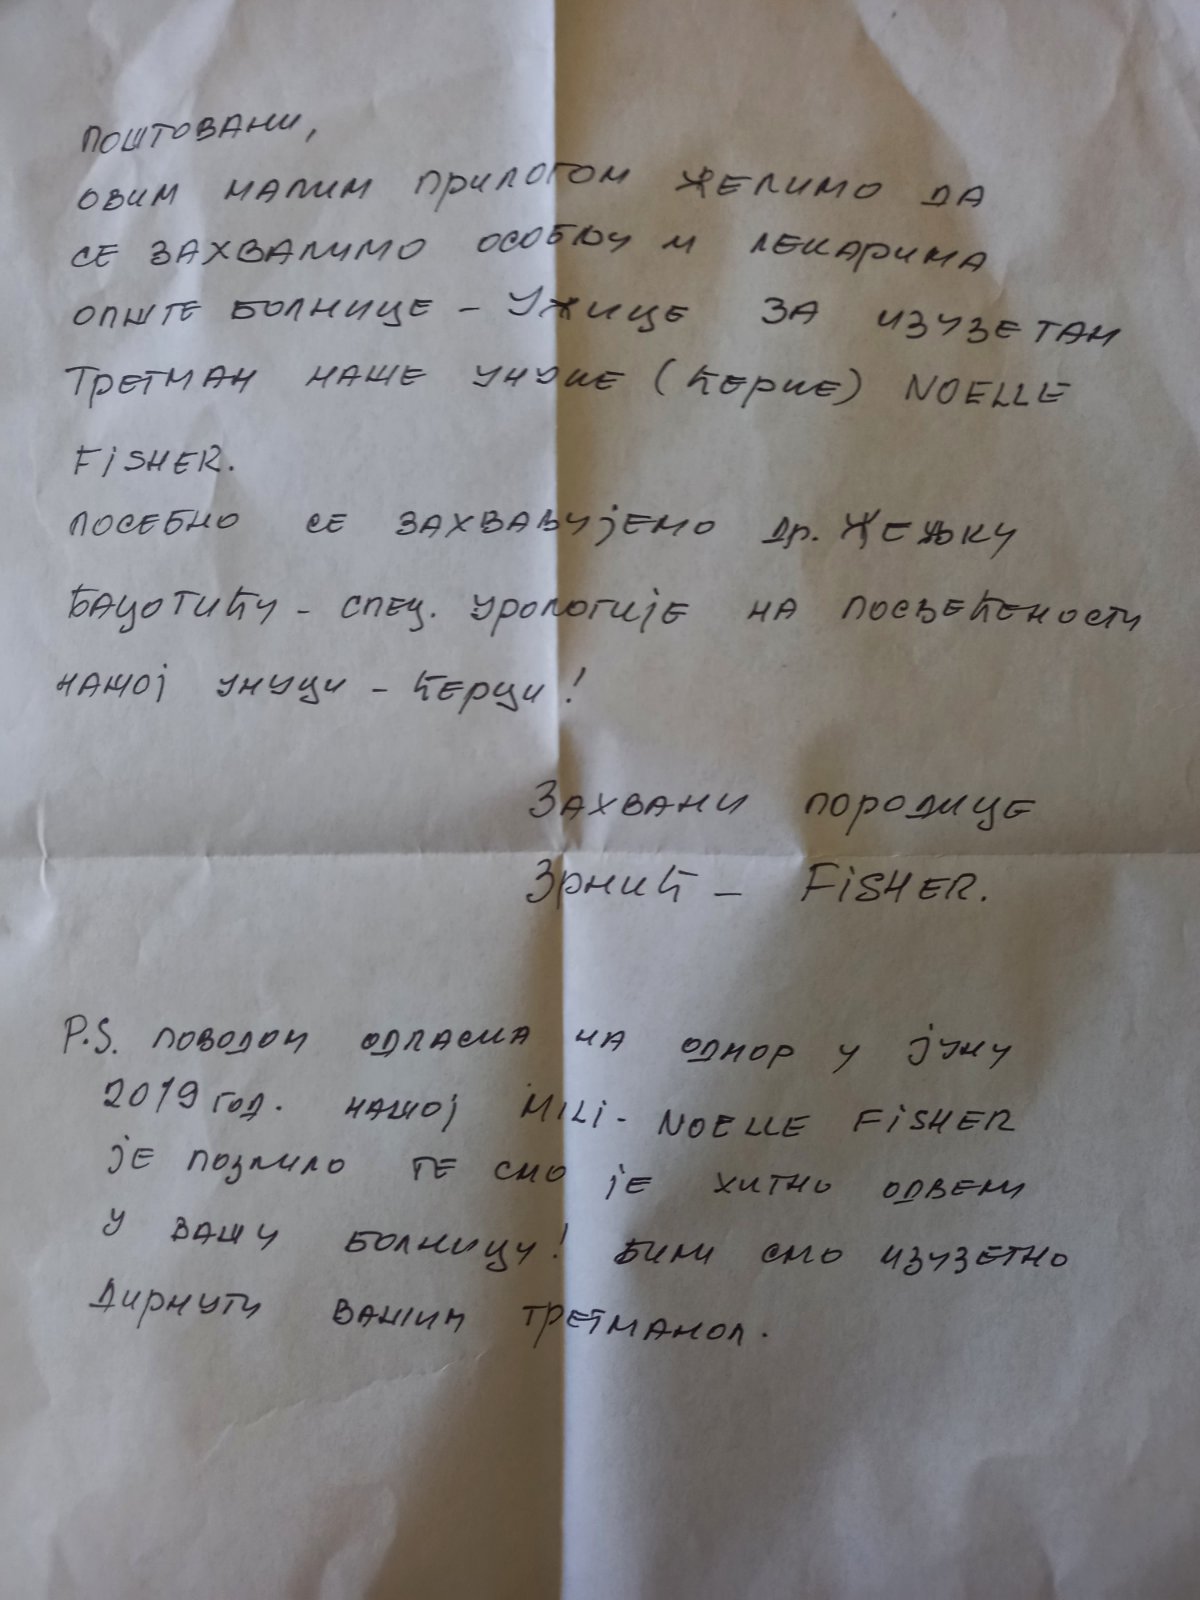 Поштовани,
овим малим прилогом желимо да
се захвалимо особљу и лекарима
опште болнице - Ужице за изузетан
третман наше унуке (ћерке) NOELLE
FISHER.
посебно се захваљујемо др. Жељку
Бацотићу - спец. урологије на посвећености
нашој унуци - ћерци!
Захвани породице
Зрнић - FISHER.
P.S. поводом одласка на одмор у јуну
2019 год. нашој MILI - NOELLE FISHER
је позлило те смо је хитно одвели
у вашу болницу! били смо изузетно
дирнути вашим третманом.